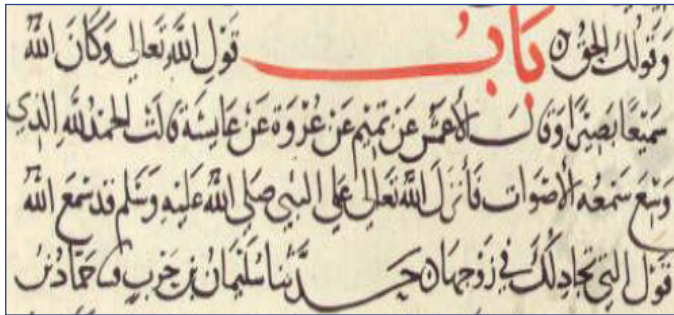 وقولك الحق ه باب قول الله تعالى وكان الله
سميعا بصيرا وقال الأعمش عن تميم عن عروة عن عايشة قالت الحمد لله الذي
وسع سمعه الأصوات فأنزل الله تعالى على النبي صلى الله عليه وسلم قد سمع الله
قول التي تجادلك في زوجها ه حدثنا سليمان بن حرب ثنا حماد بن